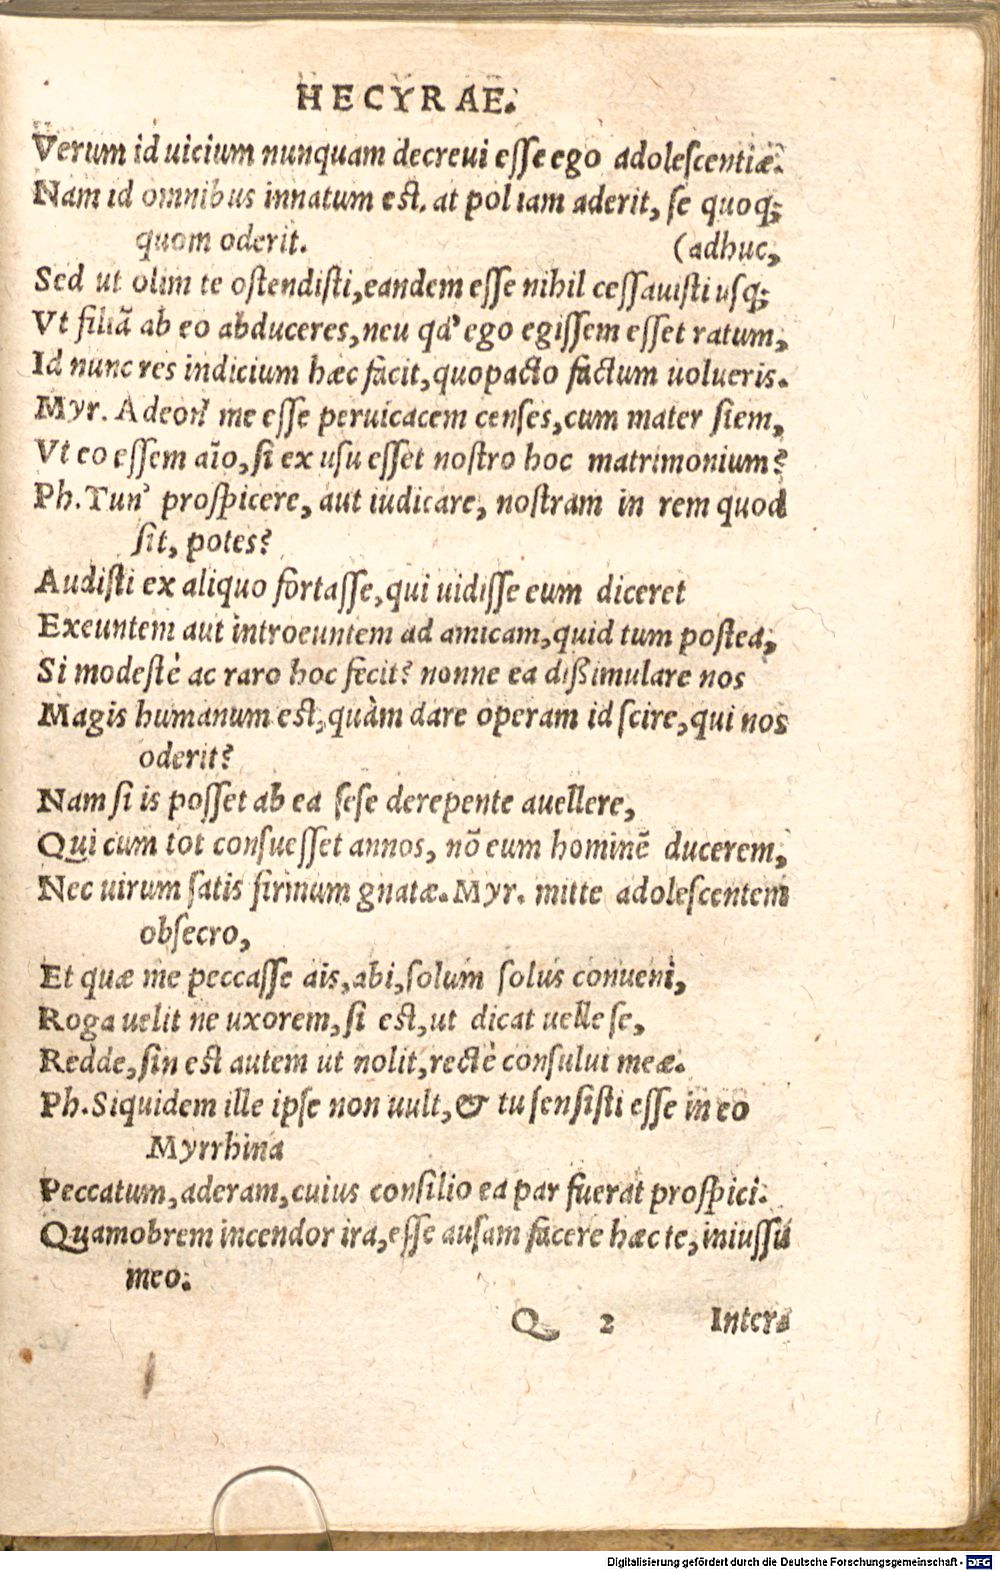 HECYRAE.
Verum id uicium nunquam decreui esse ego adolescentiæ.
Nam id omnibus innatum est. at pol iam aderit, se quoq;
quom oderit. (adhuc,
Sed ut olim te ostendisti, eandem esse nihil cessauisti usq;
Vt filiã ab eo abduceres, neu qd' ego egissem esset ratum,
Id nunc res indicium hæc facit, quo pacto factum uolueris.
Myr. Adeon' me esse peruicacem censes, cum mater siem,
Vt eo essem aĩo, si ex usu esset nostro hoc matrimonium?
Ph. Tun' prospicere, aut iudicare, nostram in rem quod
sit, potes?
Audisti ex aliquo fortasse, qui uidisse eum diceret
Exeuntem aut introeuntem ad amicam, quid tum postea,
Si modestè ac raro hoc fecit? nonne ea dißimulare nos
Magis humanum est, quàm dare operam id scire, qui nos
oderit?
Nam si is posset ab ea sese derepente auellere,
Qui cum tot consuesset annos, nõ eum hominẽ ducerem,
Nec uirum satis firmum gnatæ. Myr. mitte adolescentem
obsecro,
Et quæ me peccasse ais, abi, solum solus conueni,
Roga uelit ne uxorem, si est, ut dicat uelle se,
Redde, sin est autem ut nolit, rectè consului meæ.
Ph. Siquidem ille ipse non uult, & tu sensisti esse in eo
Myrrhina
Peccatum, aderam, cuius consilio ea par fuerat prospici.
Quamobrem incendor ira, esse ausam facere hæc te, iniussu
meo.
Q 2 Inter⸗
Digitalisierung gefördert durch die Deutsche Forschungsgemeinschaft - DFG